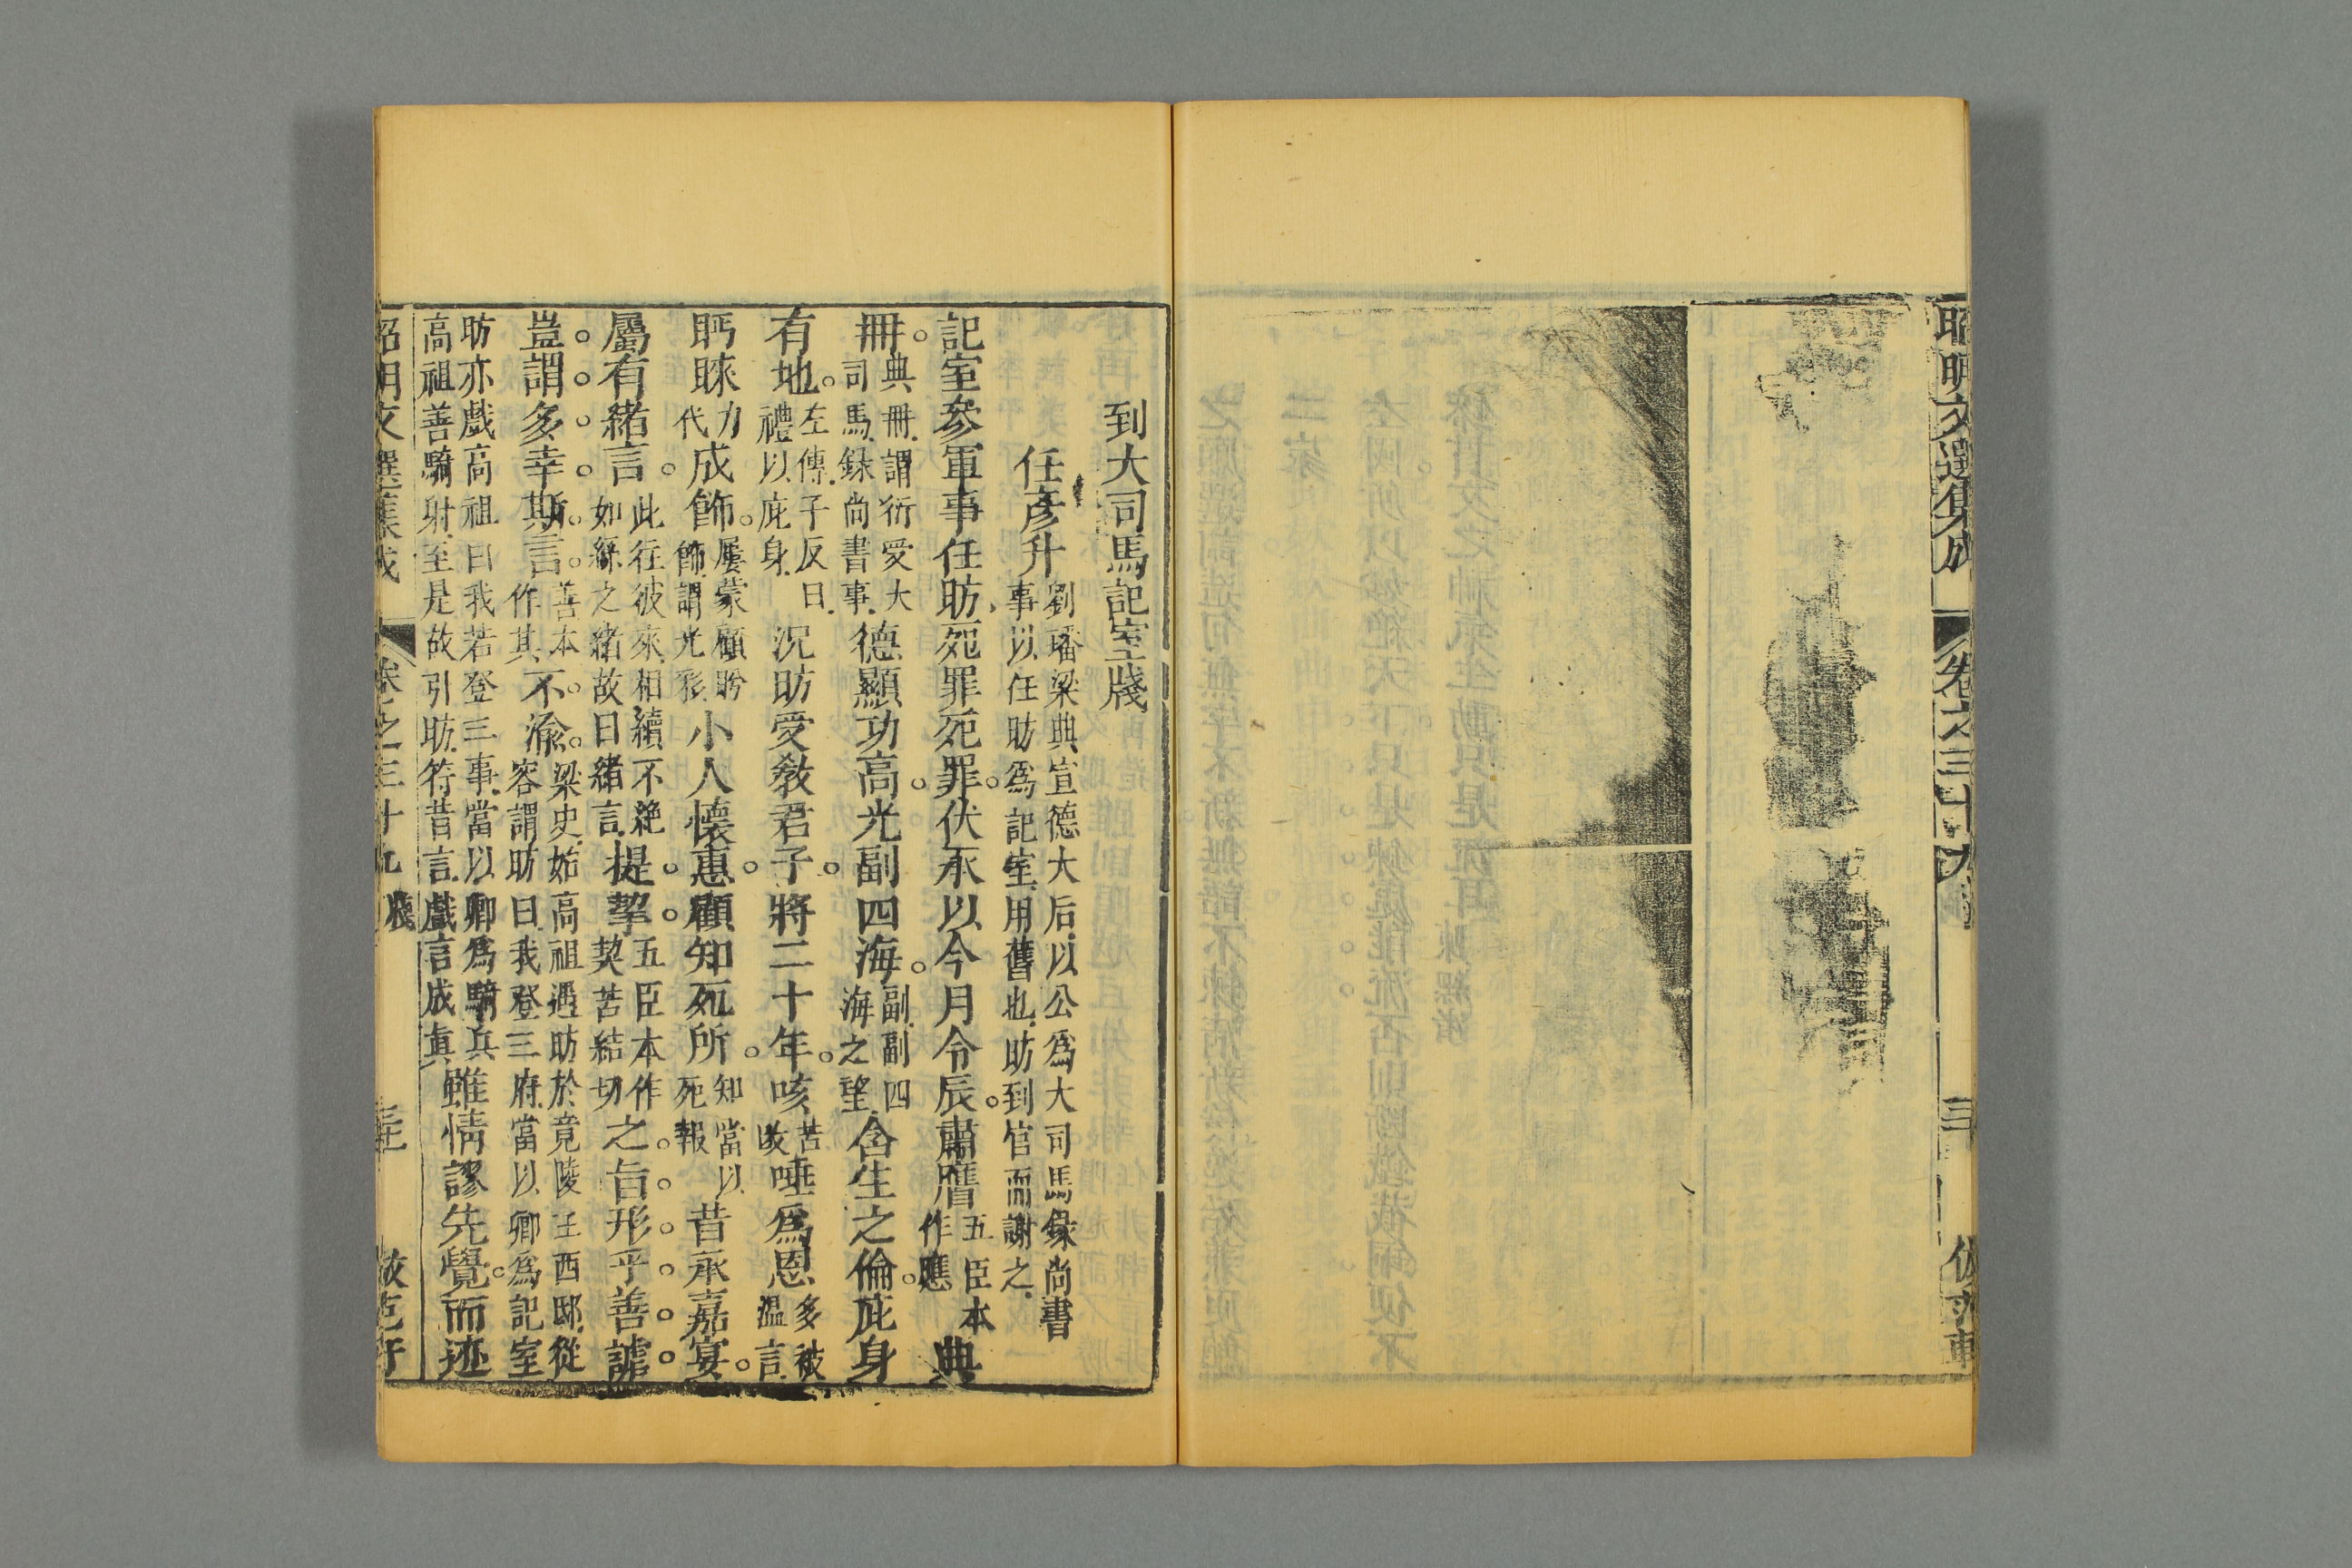 昭明文選集成 卷之三十九
到大司馬記室牋
任彥升 劉璠梁典宣德大后以公爲大司馬錄尚書事以任昉爲記室用舊也昉到官而謝之
記室參軍事任昉死罪死罪。伏承以今月令辰。肅膺 五臣本作應 典
冊。典冊謂衍爰大司馬錄尚書事 德顯功高。光副四海。副副四海之望 含生之倫。庇身
有地。左傳子反曰禮以庇身 況昉受敎君子。將二十年。咳 苦改 唾爲恩 多被溫言
眄睞 力代 成飾。屢蒙顧眄飾謂光彩 小人懷惠。顧知死所。知當以死報 昔承嘉宴。
屬有緒言。此往彼來相續不絶如綠之緒故曰緒言 提。挈。五臣本作契苦結切 之。旨。形。乎。善。謔。
豈。謂。多。幸。斯。言。善本作其 不。渝。梁史始高祖遇昉於竟陵王西邸從容謂昉曰我登三府當以卿爲記室
昉亦戲高祖曰我若登三事當以卿爲騎兵高祖善騎射至是故引昉符昔言戲言成眞 雖情謬先覺。而迹
昭明文選集成 卷之三十九 牋